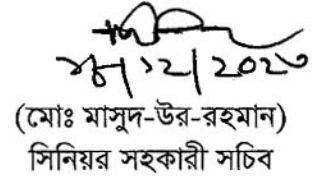 ১২/২০২৩
(মোঃ মাসুদ-উর-রহমান)
সিনিয়র সহকারী সচিব